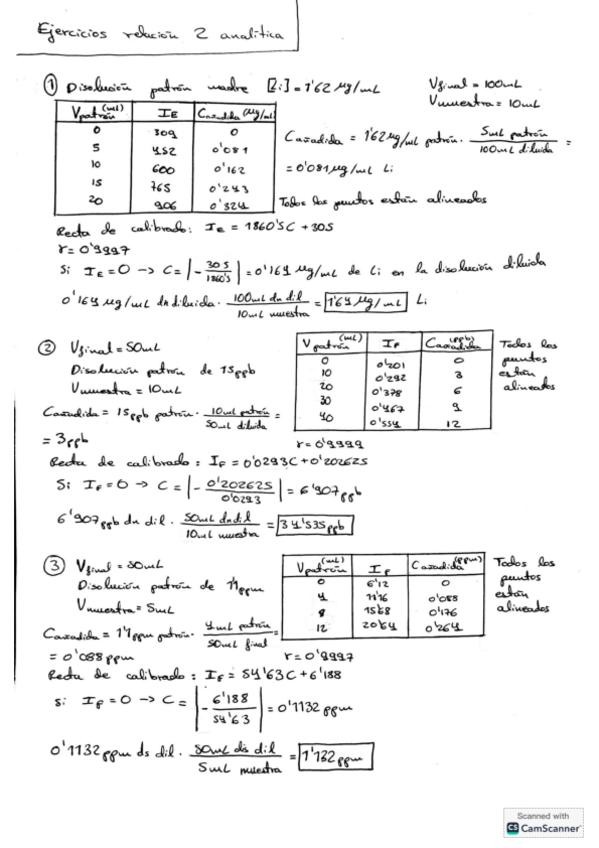 Ejercicios relación 2 analítica
① Disolución patrón madre [Li] = 1'62 µg/mL
Vfinal = 100mL
Vmuestra = 10mL
Vpatrón (mL) IE Cañadida (µg/mL)
0 309 0
5 452 0'081
10 600 0'162
15 765 0'243
20 906 0'324
Cañadida = 1'62 µg/mL patrón · 5mL patrón / 100mL diluida =
= 0'081 µg/mL Li
Todos los puntos están alineados
Recta de calibrado: IE = 1860'5C + 305
r = 0'9997
Si IE = 0 → C = |- 305 / 1860'5| = 0'164 µg/mL de Li en la disolución diluida
0'164 µg/mL dn diluida · 100mL dn dil / 10mL muestra = 1'64 µg/mL Li
② Vfinal = 50mL
Disolución patrón de 15ppb
Vmuestra = 10mL
Vpatrón (mL) IF Cañadida (ppb)
0 0'201 0
10 0'292 3
20 0'378 6
30 0'467 9
40 0'554 12
Todos los
puntos
están
alineados
Cañadida = 15ppb patrón · 10mL patrón / 50mL diluida =
= 3ppb
r = 0'9999
Recta de calibrado: IF = 0'0293C + 0'202625
Si IF = 0 → C = |- 0'202625 / 0'0293| = 6'907ppb
6'907ppb dn dil · 50mL dn dil / 10mL muestra = 34'535ppb
③ Vfinal = 50mL
Disolución patrón de 1'1ppm
Vmuestra = 5mL
Vpatrón (mL) IF Cañadida (ppm)
0 6'12 0
4 11'16 0'088
8 15'68 0'176
12 20'64 0'264
Todos los
puntos
están
alineados
Cañadida = 1'1 ppm patrón · 4mL patrón / 50mL final =
= 0'088ppm
r = 0'9997
Recta de calibrado: IF = 54'63C + 6'188
Si IF = 0 → C = |- 6'188 / 54'63| = 0'1132 ppm
0'1132ppm ds dil · 50mL ds dil / 5mL muestra = 1'132ppm
Scanned with
CS CamScanner